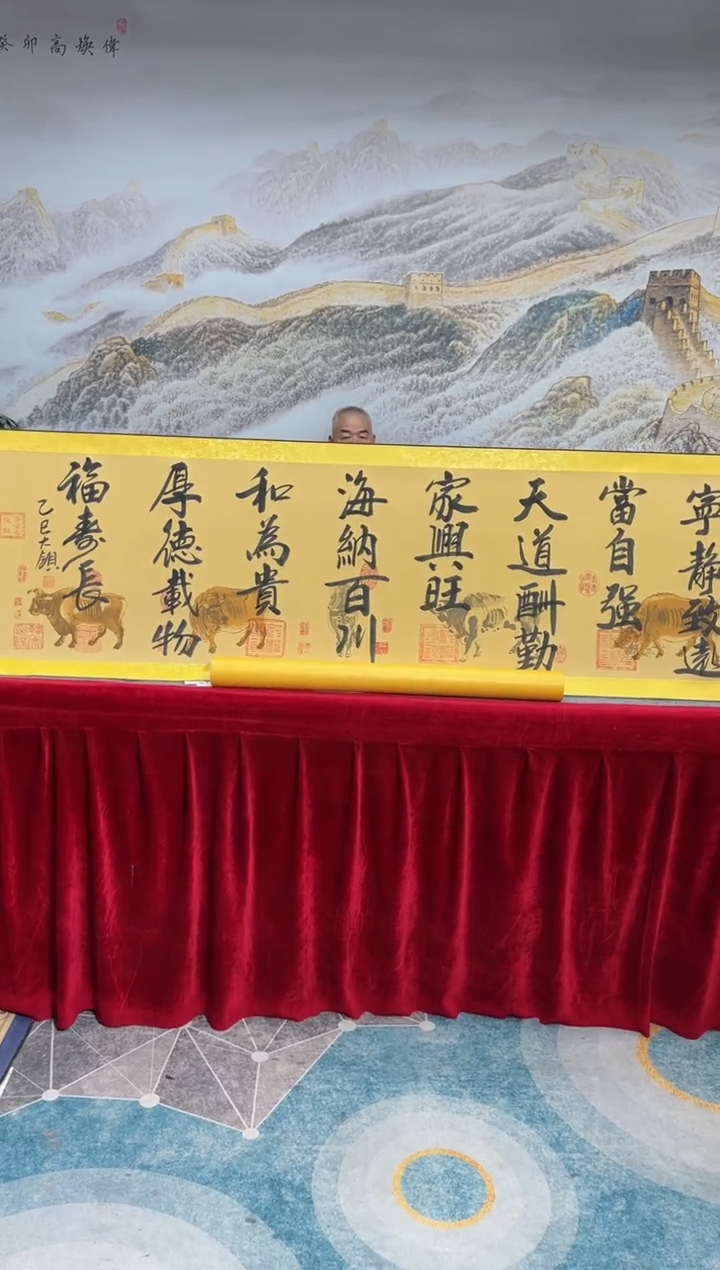 癸卯高煥偉
寧静致遠
當自强
天道酬勤
家興旺
海納百川
和為貴
厚德載物
福寿長
乙巳大